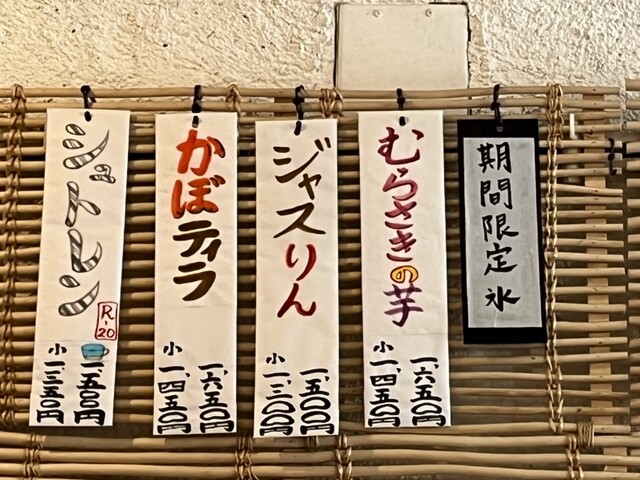 期間限定氷
むらさきの芋
一、六五〇円
小一、四五〇円
ジャスりん
一、五〇〇円
小一、三〇〇円
かぼティラ
一、六五〇円
小一、四五〇円
シュトレン
R-20
一、五〇〇円
小一、三五〇円